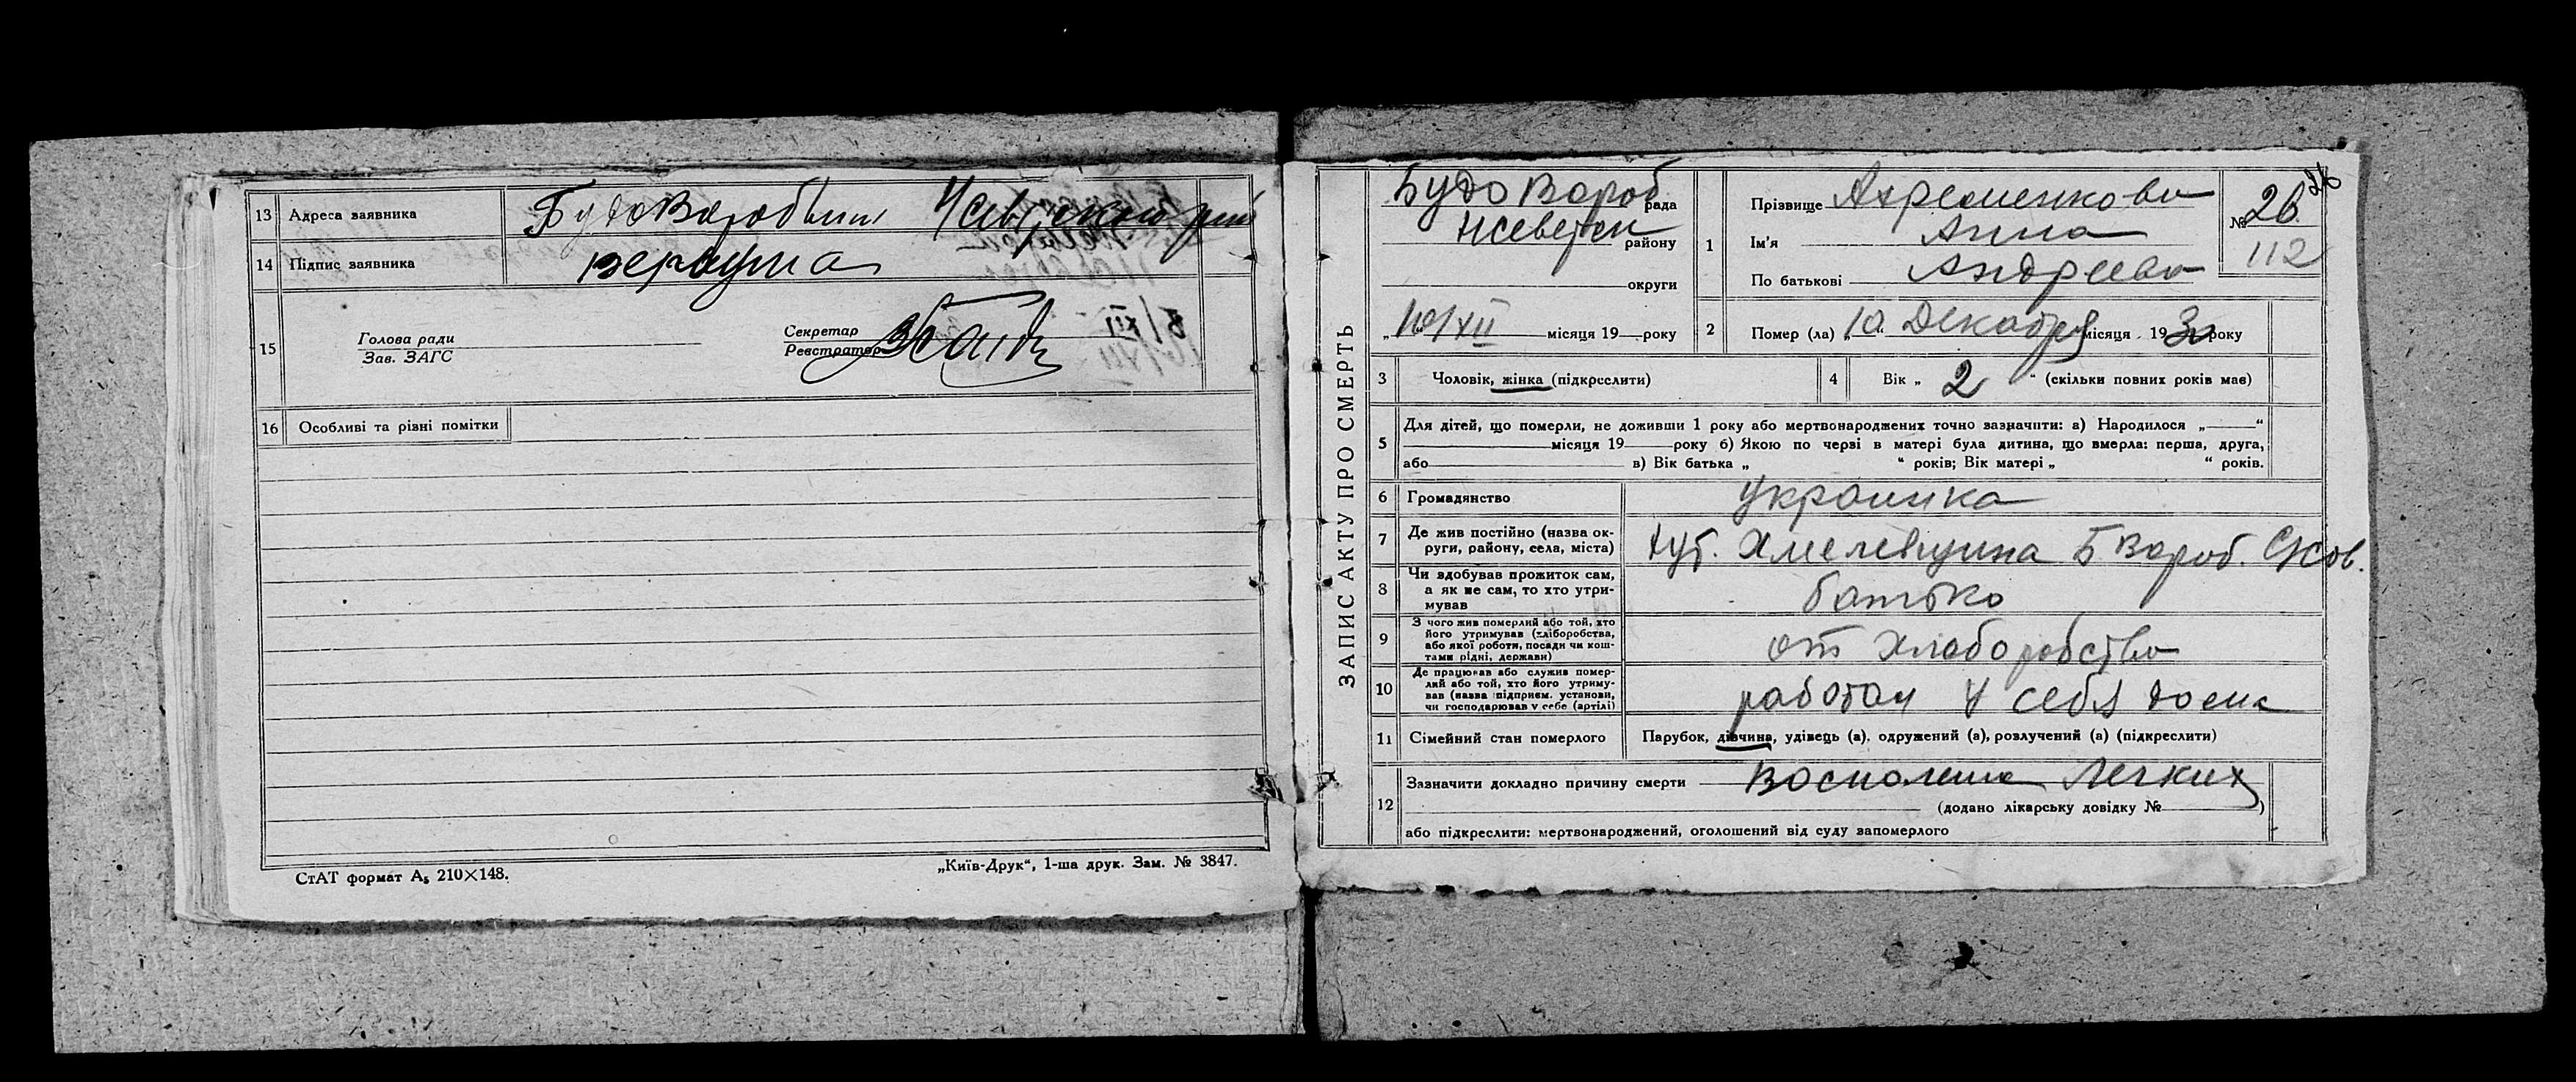 13 Адреса заявника БудоВоробьин НСевјрского рай
14 Підпис заявника
15 Голова ради
Зав. ЗАГС
Секретар
Реєстратор
16 Особливі та різні помітки
СтАТ формат А₅ 210×148.
„Київ-Друк“, 1-ша друк. Зам. № 3847.
ЗАПИС АКТУ ПРО СМЕРТЬ
Будо Вороб рада
НСеверск району
округи
„10/XII місяця 19 року
1 Прізвище Ахременкова
Ім'я Анна
По батькові Андреева
№ 26
112
2 Помер (ла) „10“ Декабря місяця 193 року
3 Чоловік, жінка (підкреслити)
4 Вік „ 2 “ (скільки повних років має)
5 Для дітей, що померли, не доживши 1 року або мертвонароджених точно зазначити: а) Народилося „ “
місяця 19 року б) Якою по черзі в матері була дитина, що вмерла: перша, друга,
або в) Вік батька „ “ років; Вік матері „ “ років.
6 Громадянство Украинка
7 Де жив постійно (назва ок-
руги, району, села, міста) хут. Хмелевщина Б Вороб.
8 Чи здобував прожиток сам,
а як не сам, то хто утри-
мував батько
9 З чого жив померлий або той, хто
його утримував (хліборобства,
або якої роботи, посади чи кош-
тами рідні, держави) от хлаборобства
10 Де працював або служив помер-
лий або той, хто його утриму-
вав (назва підприєм. установи,
чи господарював у себе (артілі) работал у себя дома
11 Сімейний стан померлого Парубок, дівчина, удівець (а), одружений (а), розлучений (а) (підкреслити)
12 Зазначити докладно причину смерти Воспаление Легких
(додано лікарську довідку № )
або підкреслити: мертвонароджений, оголошений від суду запомерлого